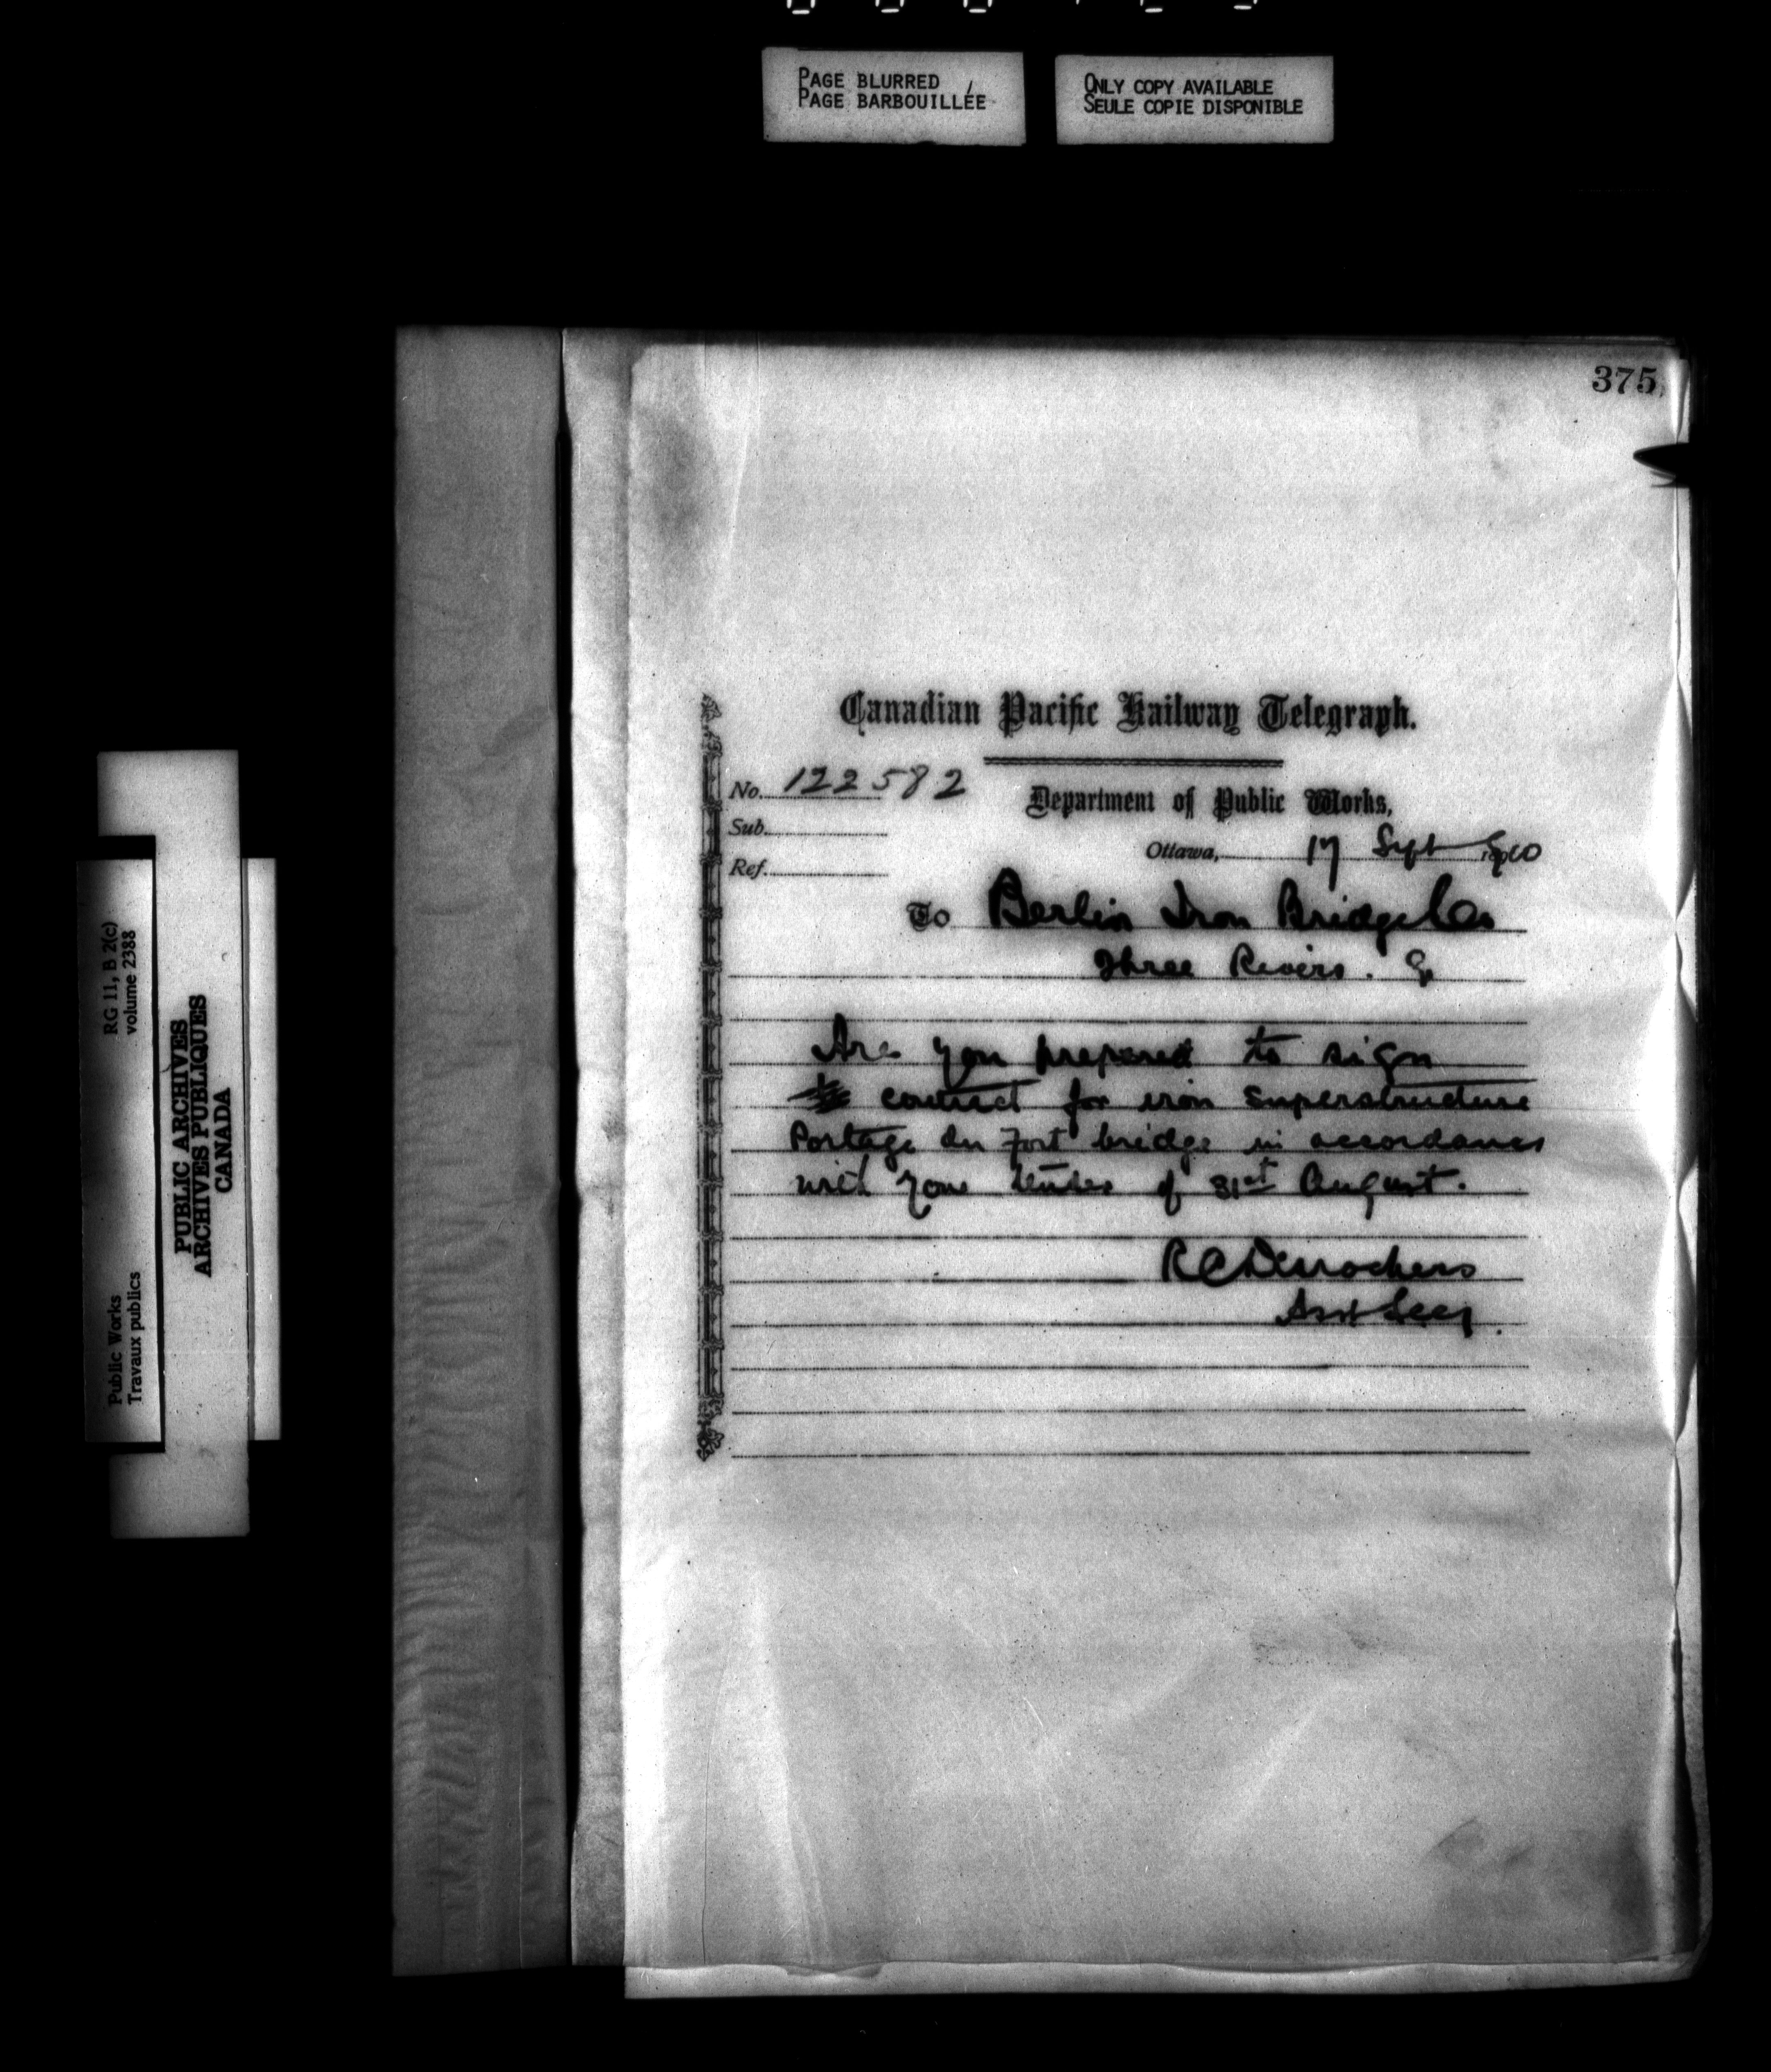 PAGE BLURRED
PAGE BARBOUILLÉE
ONLY COPY AVAILABLE
SEULE COPIE DISPONIBLE
375
Canadian Pacific Railway Telegraph.
No. 122582
Department of Public Works,
Sub.
Ottawa, 17 Sept
Ref.
To Berlin Iron Bridge Co
Three Rivers. Q
Are you prepared to sign
contract for iron superstructure
Portage du Fort bridge in accordance
with your tender of 31st August.
R C Desrochers
Asst Secy.
RG 11, B 2(c)
volume 2388
Public Works
Travaux publics
PUBLIC ARCHIVES
ARCHIVES PUBLIQUES
CANADA